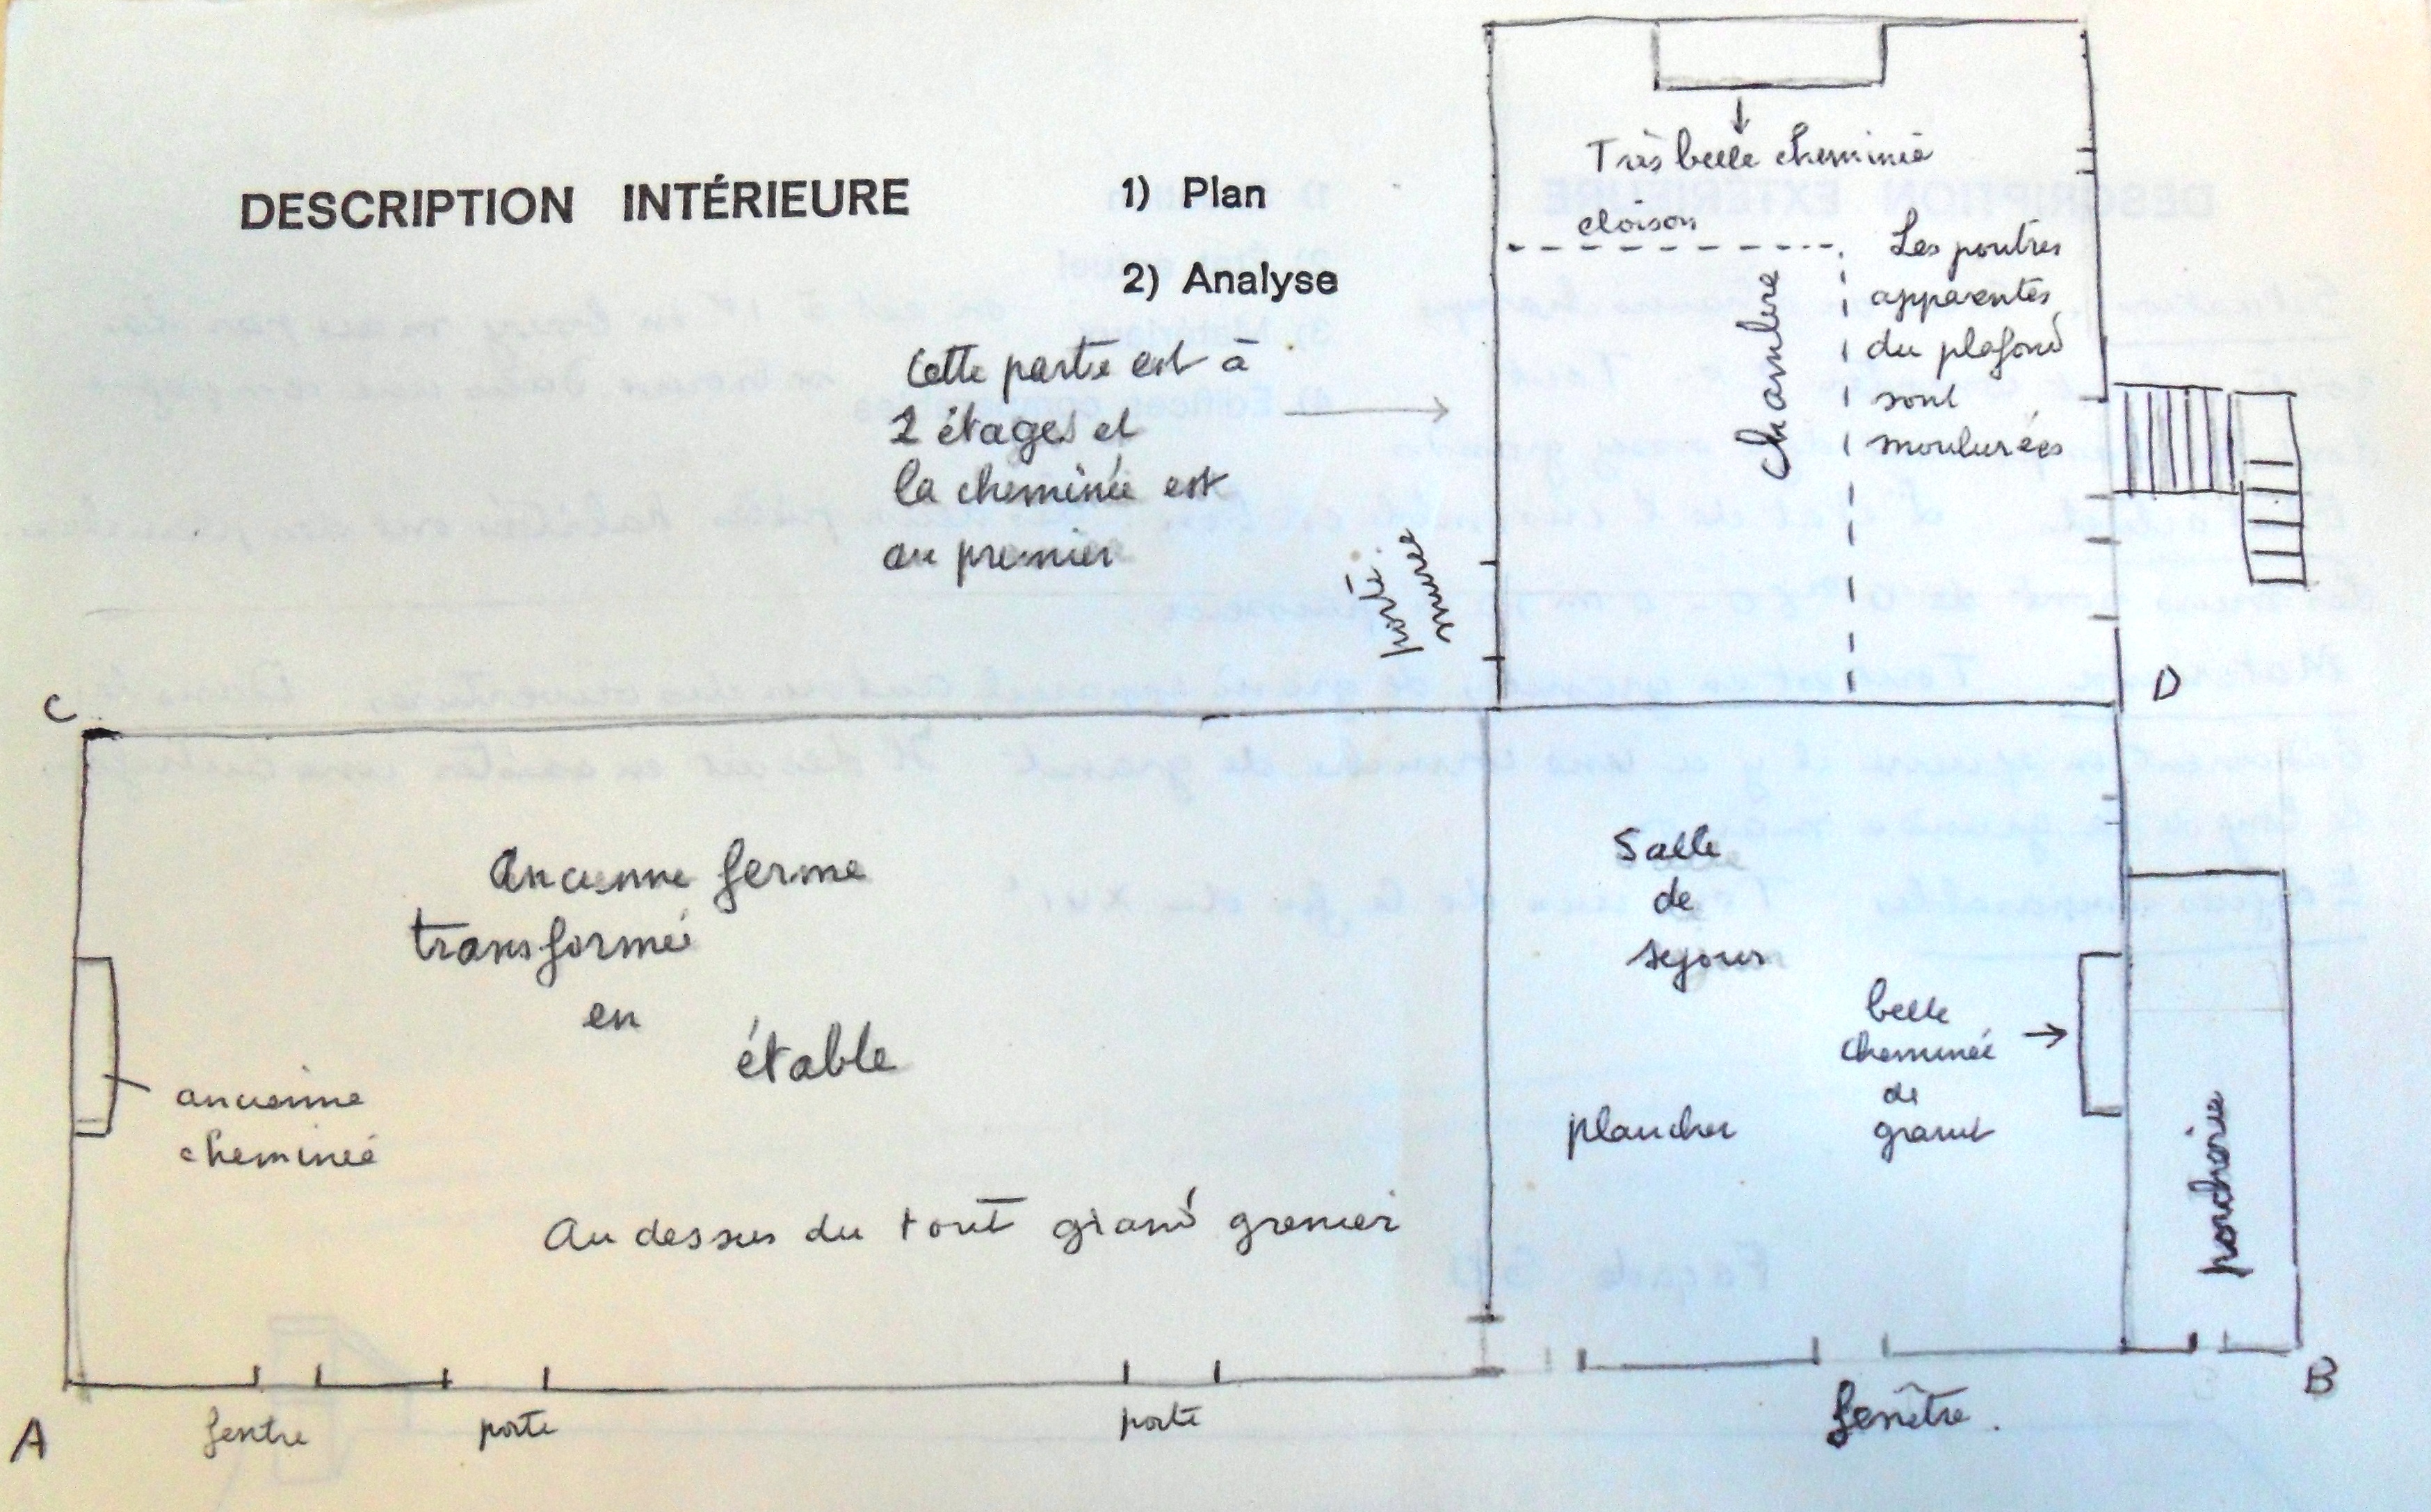 DESCRIPTION INTÉRIEURE
1) Plan
2) Analyse
Cette partie est à
2 étages et
la cheminée est
au premier
Très belle cheminée
cloison
chambre
Les poutres
apparentes
du plafond
sont
moulurées
porte
murée
C
D
Ancienne ferme
transformée
en
étable
ancienne
cheminée
Au dessus du tout grand grenier
Salle
de
sejour
belle
cheminée
de
granit
plancher
porcherie
A
fentre
porte
porte
fenêtre.
B